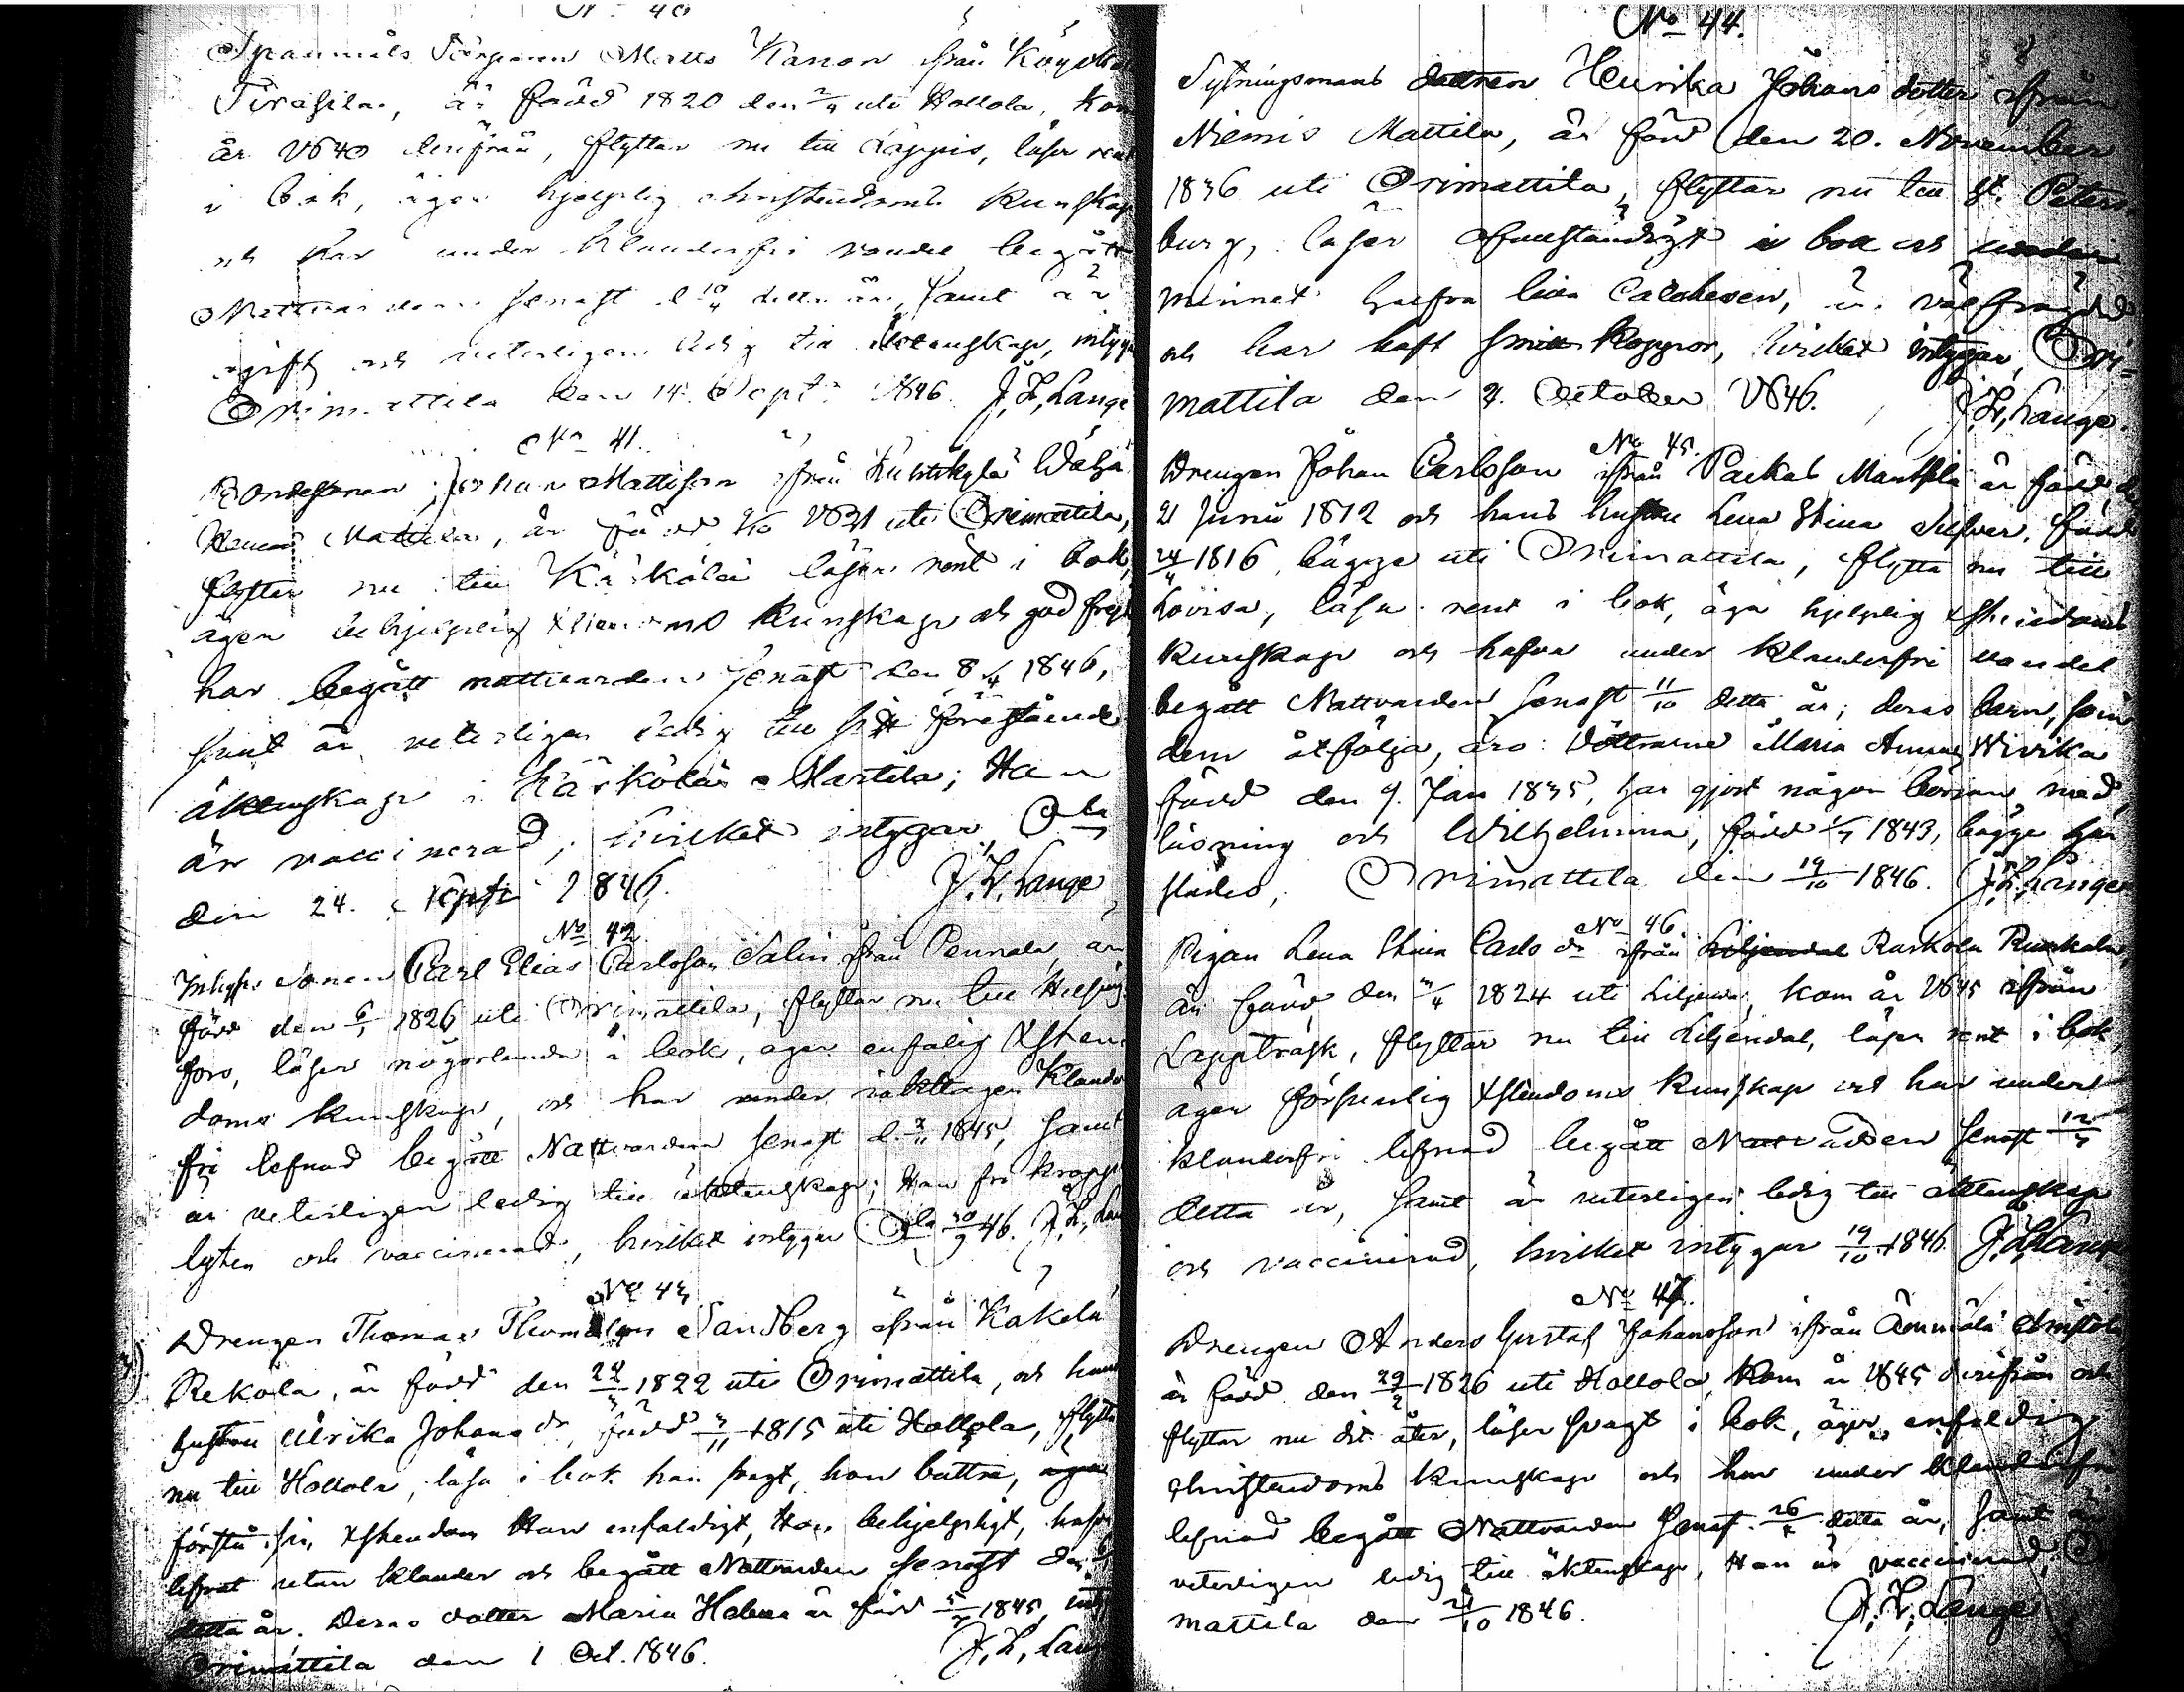 No 40
Matts från
är född 1820 den uti Hollola, kom
år 1840 derifrån, flyttar nu till Läppis, läser rent
i bok, äger hjelplig christendoms kunskap
och har under klanderfri vandel begått
Nattvarden senast d. detta år, samt är
ogift och veterligen ledig till äktenskap, intygar
Orimattila den 14. Sept. 1846. J. L, Lange
No 41.
Bondesonen Johan Mattsson ifrån
Mattila, är född 1821 uti Orimattila,
flyttar nu till Kärkölä läser rent i bok,
äger behjelplig kunskap och god frejd
har begått nattvarden senast den 8/4 1846,
samt är veterligen ledig till sitt förestående
äktenskap i Kärkölä Marttila; Han
är vaccinerad, hvilket intygar, Ola
den 24. Sept. 1846. J. L, Lange
No 42.
Inhyses Sonen Carl Elias Carlsson Salin från Pennala, är
född den 1826 uti Orimattila, flyttar nu till Helsing-
fors, läser någorlunda i bok, äger enfalig Xsten-
doms kunskap, och har under iakttagen klander
fri lefnad begått Nattvarden senast d. 1845, samt
är veterligen ledig till äktenskap; Han fri kropps
lyten och vaccinerad, hvilket intygar Ola 30/9 46. J. L, Lan
No 43
Drengen Thomas Thomasson Sandberg ifrån Kakola
Rekola, är född den 22/3 1822 uti Orimattila, och hans
hustru Ulrika Johans dr, född 3/11 1815 uti Hollola, flytta
nu till Hollola, läsa i bok han svagt, hon bättre,
förstå sin Xstendom Han enfaldigt, Hon behjelpligt, hafva
lefvat utan klander och begått Nattvarden senast den
detta år. Deras dotter Maria Helena är född 1845, intyg
Orimattila den 1 Oct. 1846. J. L, Lan
No 44.
Sytningsmans dottren Henrika Johans dotter ifrån
Niemis Mattila, är född den 20. November
1836 uti Orimattila, flyttar nu till St. Peters-
burg, läser i bok och
minnet lilla Catchesen, är välfrejdad
och har haft Koppor, hvilket intygar, Ori-
mattila den 7. October 1846. J. L, Lange.
No 45.
Drengen Johan Carlsson ifrån Packas Manthila är född d.
21 Junii 1812 och hans hustru Lena Stina Silfver, född
24/11 1816, bägge uti Orimattila, flytta nu till
Lovisa, läsa rent i bok, äga hjelplig
kunskap och hafva under klanderfri vandel
begått Nattvarden senast 11/10 detta år; deras barn, som
dem åtfölja, äro: Döttrarne Maria Anna Wivika
född den 9. Jan 1835, har gjort någon början med
läsning och Wilhelmina, född 1843, bägge här
städes, Orimattila den 19/10 1846. J. L. Lange
No 46.
Pigan Lena Stina Carls dr ifrån Liljendal Ruskola Ruskala,
är född den 1824 uti Liljendal, kom år 1845 ifrån
Lappträsk, flyttar nu till Liljendal, läser rent i bok,
äger försvarlig Xstendoms kunskap och har under
klanderfri lefnad begått Nattvarden senast
detta år, samt är veterligen ledig till äktenskap
och vaccinerad, hvilket intygar 19/10 1846. J. L. Lange
No 47.
Drengen Anders Gustaf Johansson ifrån
är född den 29/2 1826 uti Hollola, kom år 1845 derifrån och
flyttar nu dit åter, läser svagt i bok, äger enfaldig
christendoms kunskap och har under klanderfri
lefnad begått Nattvarden senast detta år, samt är
veterligen ledig till äktenskap, Han är vaccinerad, Ori
mattila den 21/10 1846. J. L. Lange